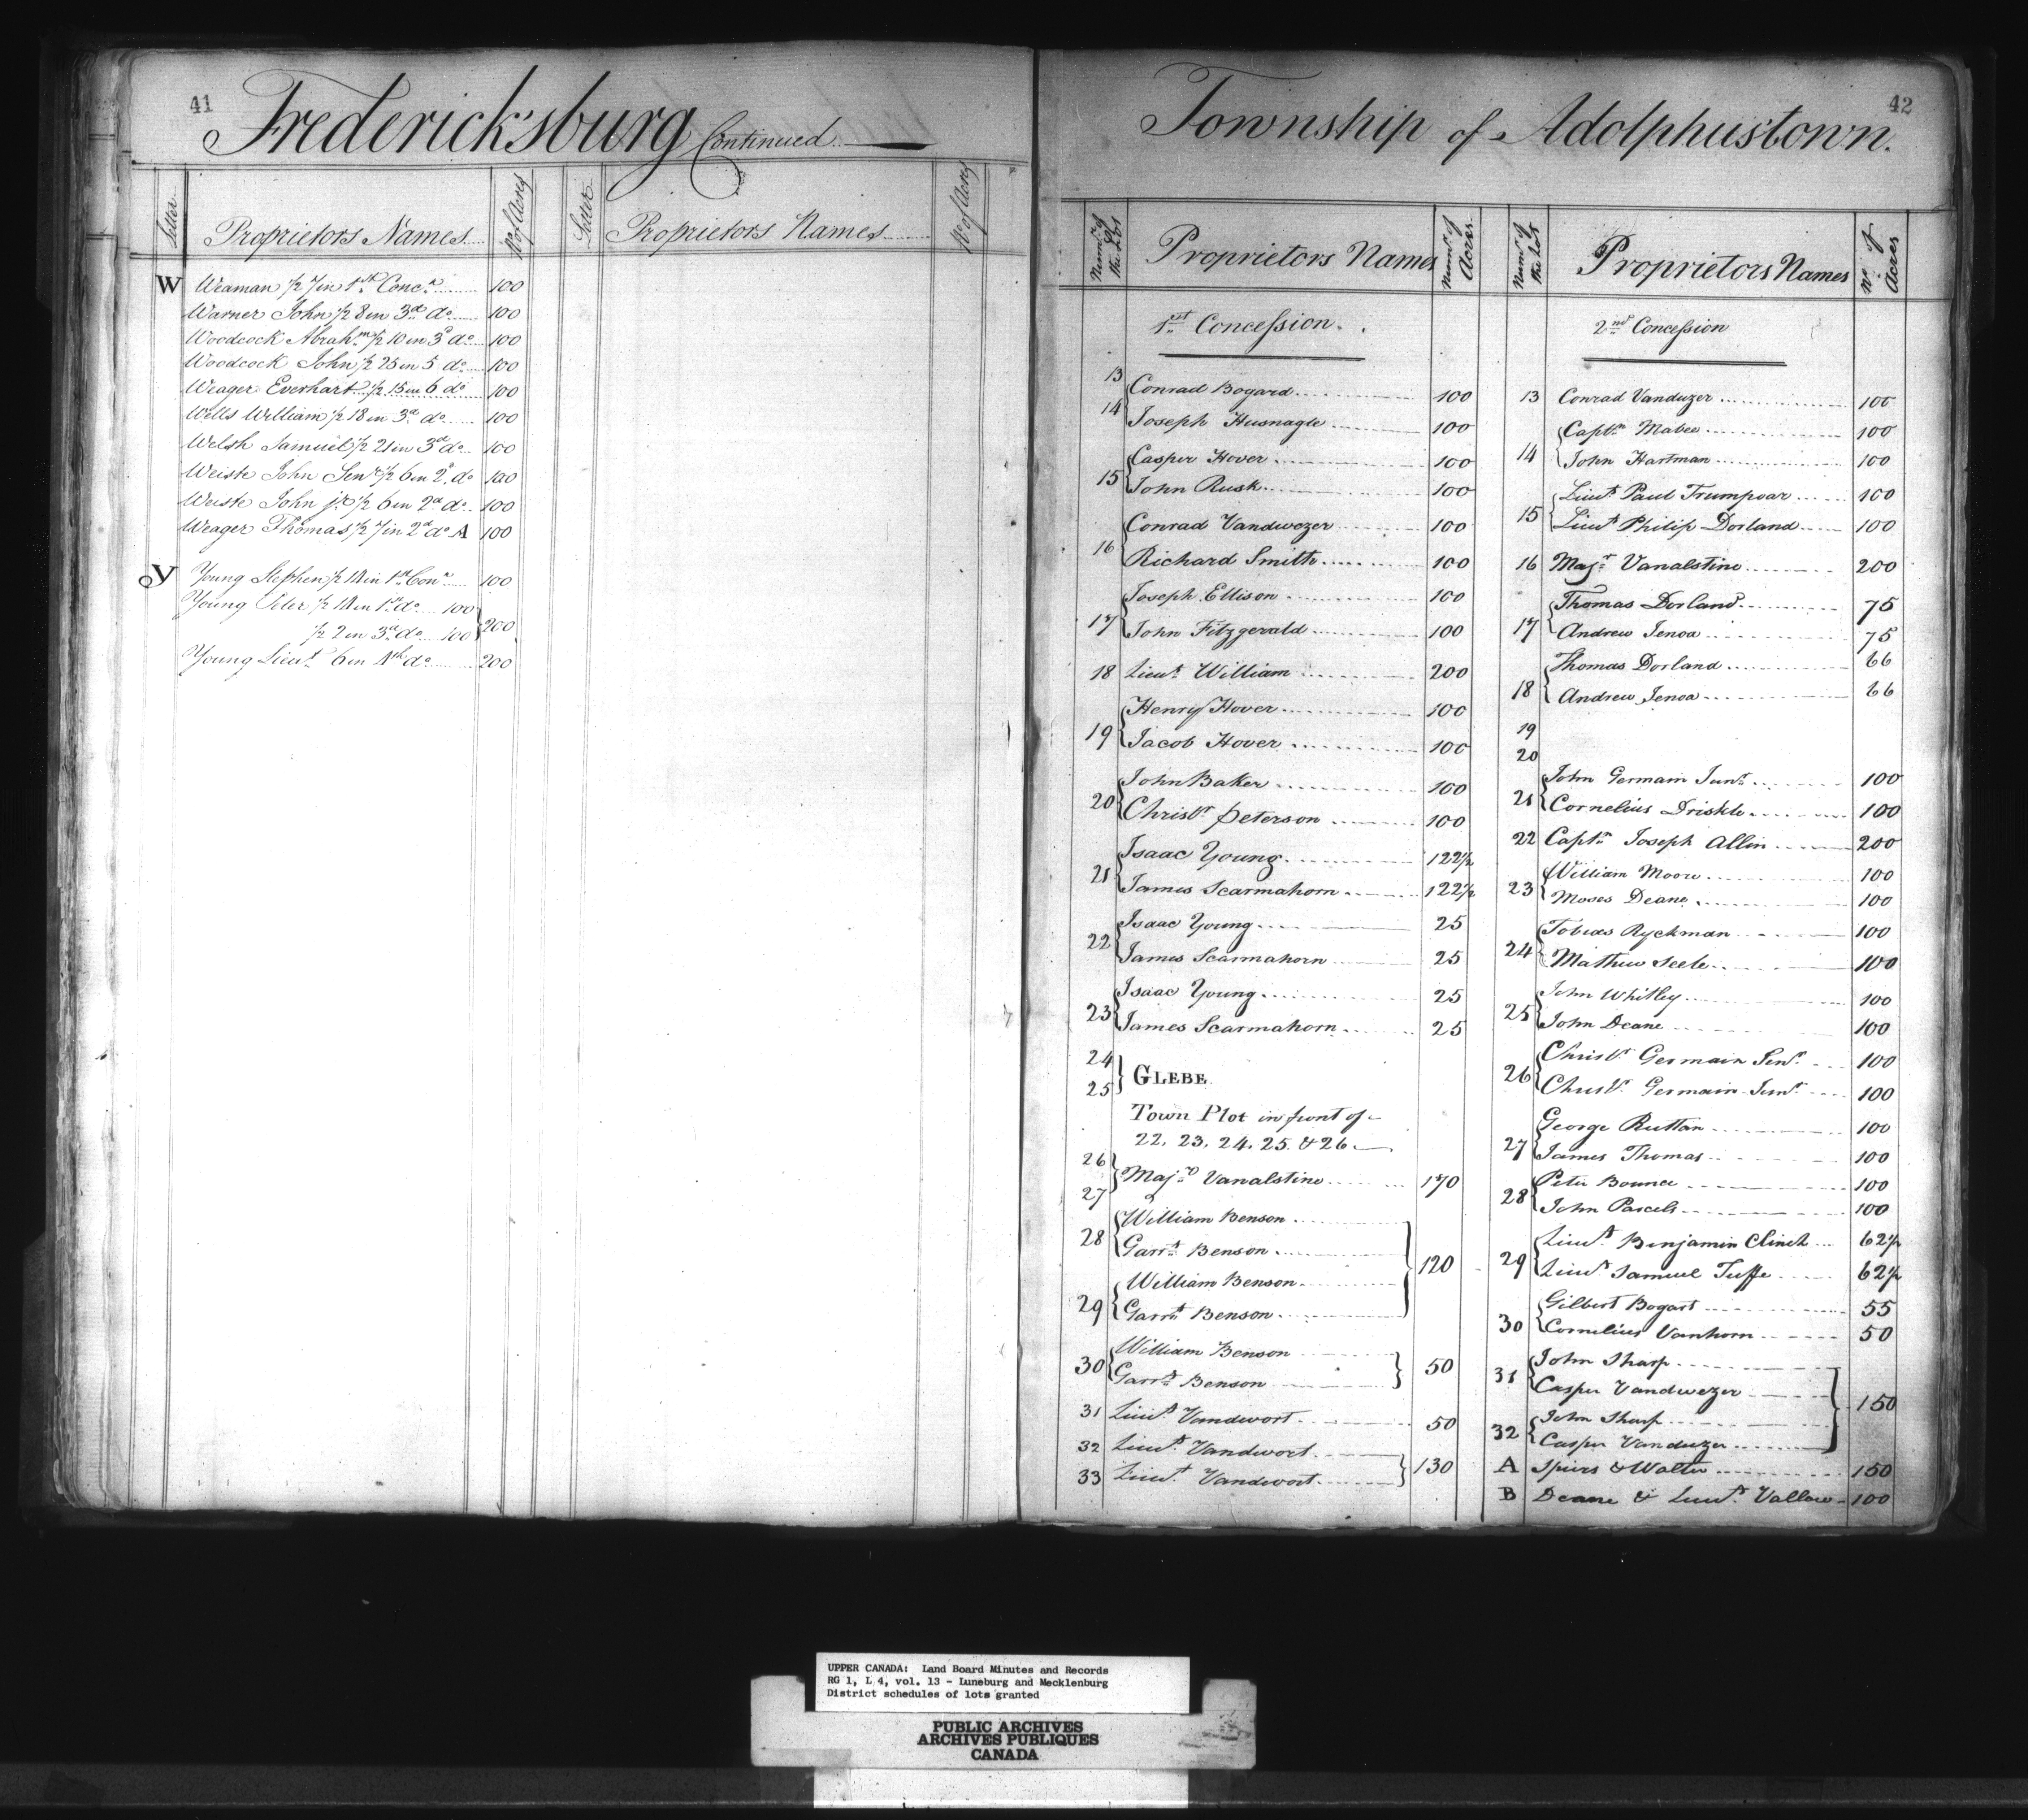 41
Fredericksburg Continued
Letter
Proprietors Names
No of Acres
Letter
Proprietors Names
No of Acres
W Weaman 1/2 7 in 1st Concn 100
Warner John 1/2 8 in 3d do 100
Woodcock Abrahm 1/2 10 in 3d do 100
Woodcock John 1/2 25 in 5 do 100
Weager Everhart 1/2 15 in 6 do 100
Wells William 1/2 18 in 3d do 100
Welsh Samuel 1/2 21 in 3d do 100
Weiste John Senr 1/2 6 in 2d do 100
Weiste John jr 1/2 6 in 2d do 100
Weager Thomas 1/2 7 in 2d do A 100
Y Young Stephen 1/2 14 in 1st Conn 100
Young Peter 1/2 14 in 1st do 100
1/2 2 in 3d do 100 } 200
Young Lieut 6 in 4th do 200
42
Township of Adolphustown.
Numr of the Lot
Proprietors Names
Numr of Acres
1st Concession.
13 Conrad Bogard 100
14 Joseph Husnagle 100
Casper Hover 100
15 John Rusk 100
Conrad Vandwezer 100
16 Richard Smith 100
Joseph Ellison 100
17 John Fitzgerald 100
18 Lieut William 200
Henry Hover 100
19 Jacob Hover 100
John Baker 100
20 Christr Peterson 100
Isaac Young 122 1/2
21 James Scarmahorn 122 1/2
Isaac Young 25
22 James Scarmahorn 25
Isaac Young 25
23 James Scarmahorn 25
24
25 } GLEBE
Town Plot in front of
22. 23. 24. 25. & 26
26
27 } Majr Vanalstine 170
William Benson
28 Garrt Benson
120
William Benson
29 Garrt Benson
William Benson
30 Garrt Benson } 50
31 Lieut Vandwort 50
32 Lieut Vandwort
33 Lieut Vandwort } 130
Numr of the Lot
Proprietors Names
No of Acres
2nd Concession
13 Conrad Vanduzer 100
Captn Mabee 100
14 John Hartman 100
Lieut Paul Trumpoar 100
15 Lieut Philip Dorland 100
16 Majr Vanalstine 200
Thomas Dorland 75
17 Andrew Jenoa 75
Thomas Dorland 66
18 Andrew Jenoa 66
19
20
John Germain Junr 100
21 Cornelius Driskle 100
22 Captn Joseph Allin 200
William Moore 100
23 Moses Deane 100
Tobias Ryckman 100
24 Mathew Seele 100
John Whitley 100
25 John Deane 100
Christr Germain Senr 100
26 Christr Germain Junr 100
George Ruttan 100
27 James Thomas 100
Peter Bounce 100
28 John Parcels 100
Lieut Benjamin Clinch 62 1/2
29 Lieut Samuel Tuffe 62 1/2
Gilbert Bogart 55
30 Cornelius Vanhorn 50
John Sharp
31 Casper Vandwezer
150
John Sharp
32 Casper Vanduzer
A Spiers & Walter 150
B Deane & Lieut Vallow 100
UPPER CANADA: Land Board Minutes and Records
RG 1, L 4, vol. 13 - Luneburg and Mecklenburg
District schedules of lots granted
PUBLIC ARCHIVES
ARCHIVES PUBLIQUES
CANADA